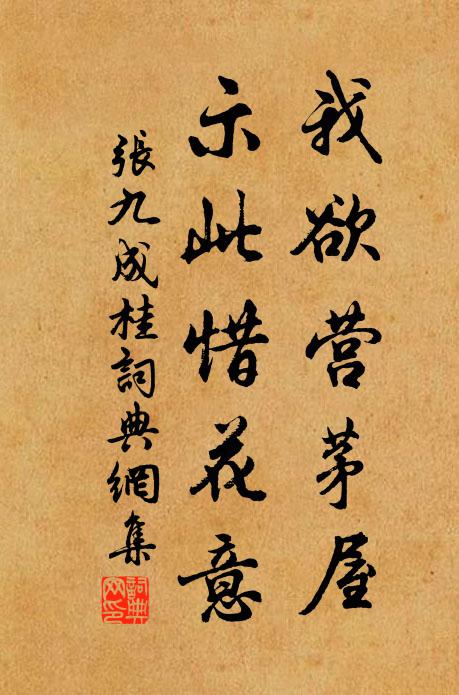 我欲营茅屋
示此惜花意
張九成桂詞典網集
詞典
网印